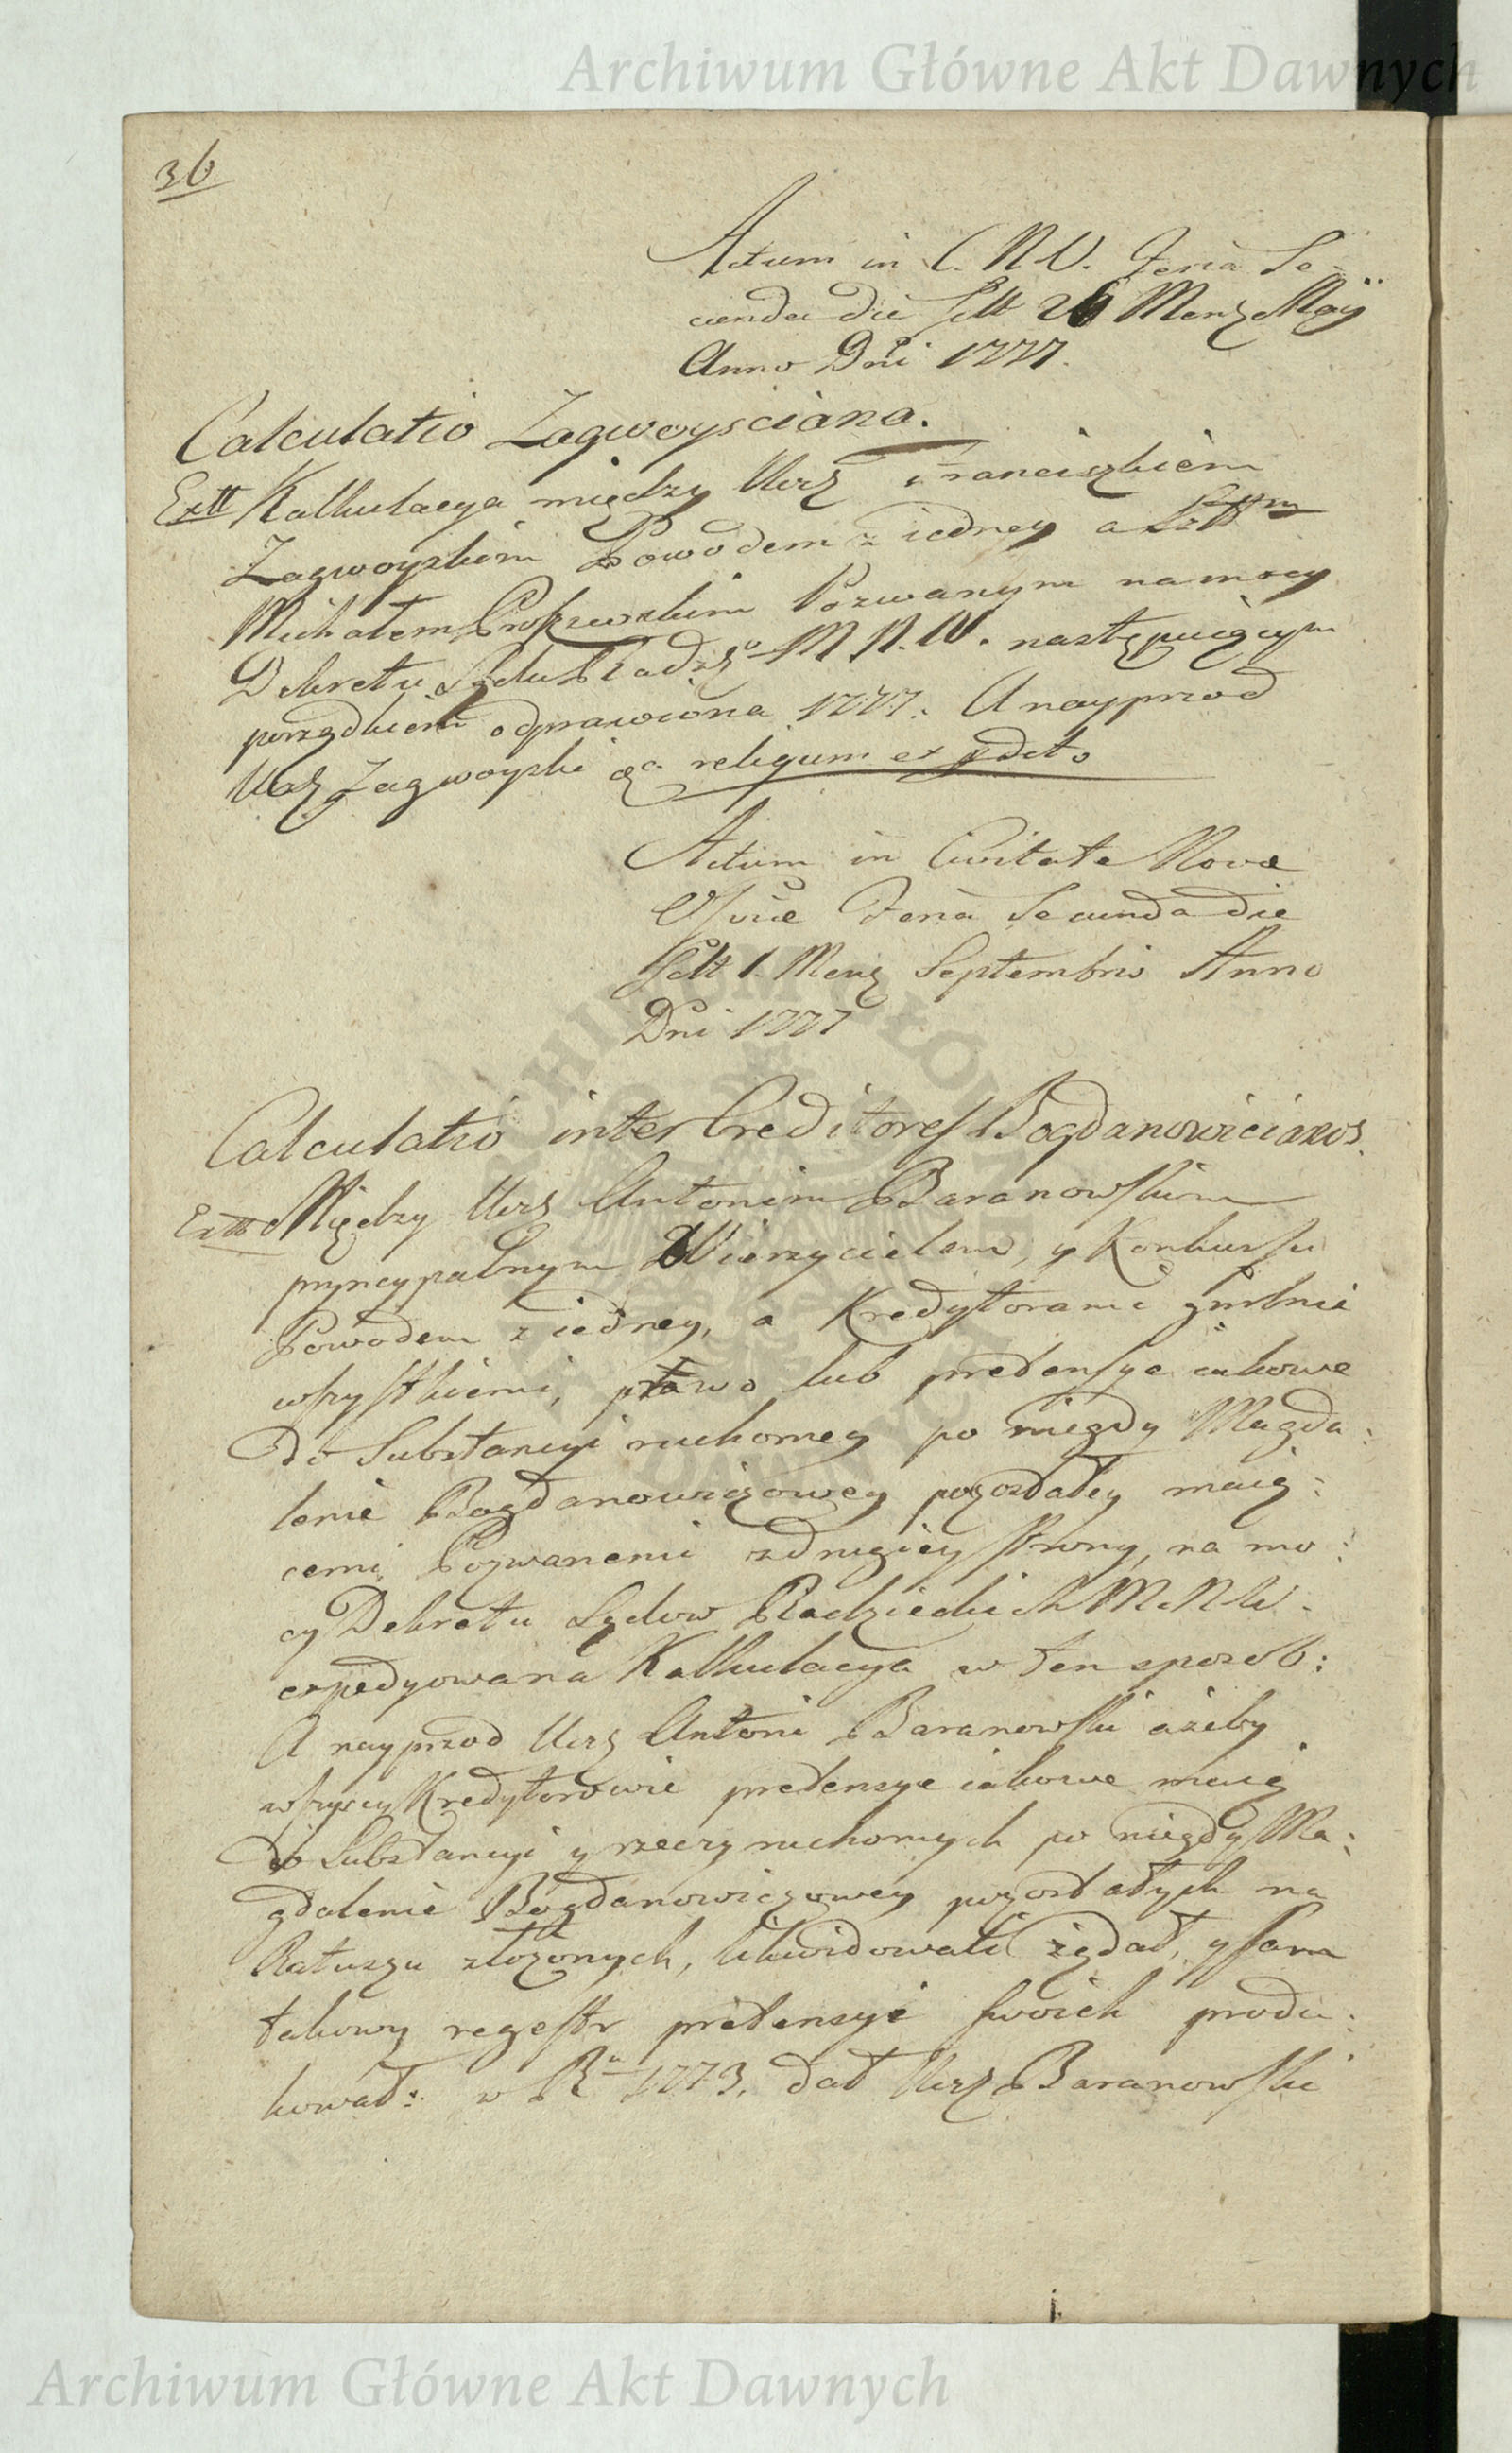 Archiwum Główne Akt Dawnych
36
Actum in C. N. V. Feria Se-
cunda die scilt 26 Mens Maÿ
Anno Dni 1777.
Calculatio Zagwoysciana.
Extt Kalkulacya między Urz Franciszkiem
Zagwoyskim Powodem z iedney a
Michałem Pozwanym na mocy
Dekretu Sądu Radz˜ᵒ M. N. W. następuiącym
porządkiem odprawiona 1777. A nayprzod
Urz Zagwoyski religum ex
Actum in Civitate Nova
Feria Secunda die
scilt 1. Mens Septembris Anno
Dni 1777
Calculatio inter Creditores Bogdanowicianos.
Extt Między Urz Antonim Baranowskim
pryncypalnym Wierzycielem, y Konkursu
Powodem z iedney, a Kredytorami
wszystkiemi, prawo lub pretensye iakowe
do Substancyi ruchomey po niegdy Magda:
lenie Bogdanowiczowey pozostałey maią:
cemi Pozwanemi z drugiey strony, na mo:
cy Dekretu Sądow Radzieckich M. N. W.
expedyowana Kalkulacya w ten sposob:
A nayprzod Urz Antoni Baranowski ażeby
wszyscy Kredytorowie pretensye iakowe maią
do Substancyi y rzeczy ruchomych po niegdy Ma:
gdalenie Bogdanowiczowey pozostałych na
Ratuszu złożonych, likwidowali żądał, y sam
takowy regestr pretensyi swoich produ:
kował: w Rᵘ 1773. dał Urz Baranowski
Archiwum Główne Akt Dawnych